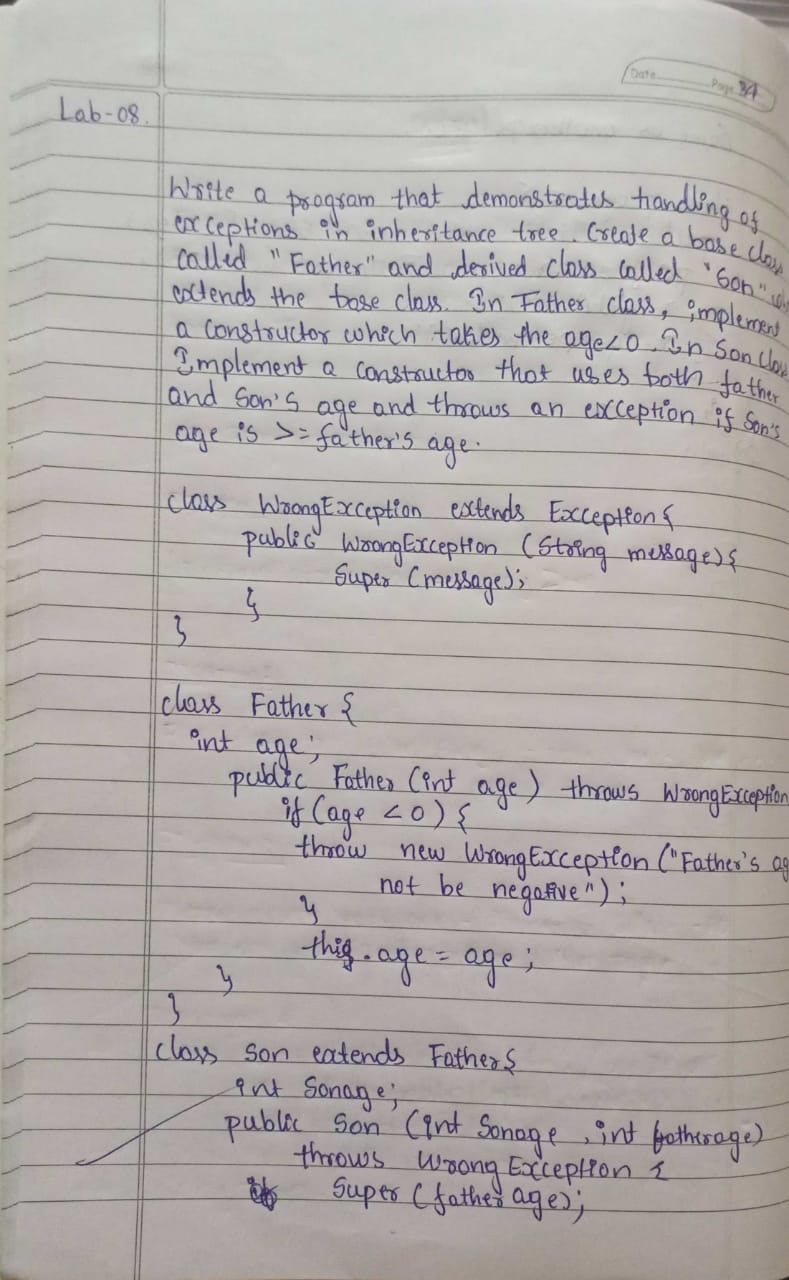 Date
Page 34
Lab-08.
Write a program that demonstrates handling of
exceptions in inheritance tree. Create a base class
called "Father" and derived class called "Son"
extends the base class. In Father class, implement
a constructor which takes the age<0. In Son class
Implement a constructor that uses both father
and Son's age and throws an exception if Son's
age is >= father's age.
class WrongException extends Exception{
public WrongException (String message){
Super (message);
}
}
class Father {
int age;
public Father (int age) throws WrongException
if (age <0) {
throw new WrongException ("Father's ag
not be negative");
}
this.age = age;
}
}
class Son extends Father{
int Sonage;
public Son (int Sonage, int fatherage)
throws WrongException {
Super (father age);